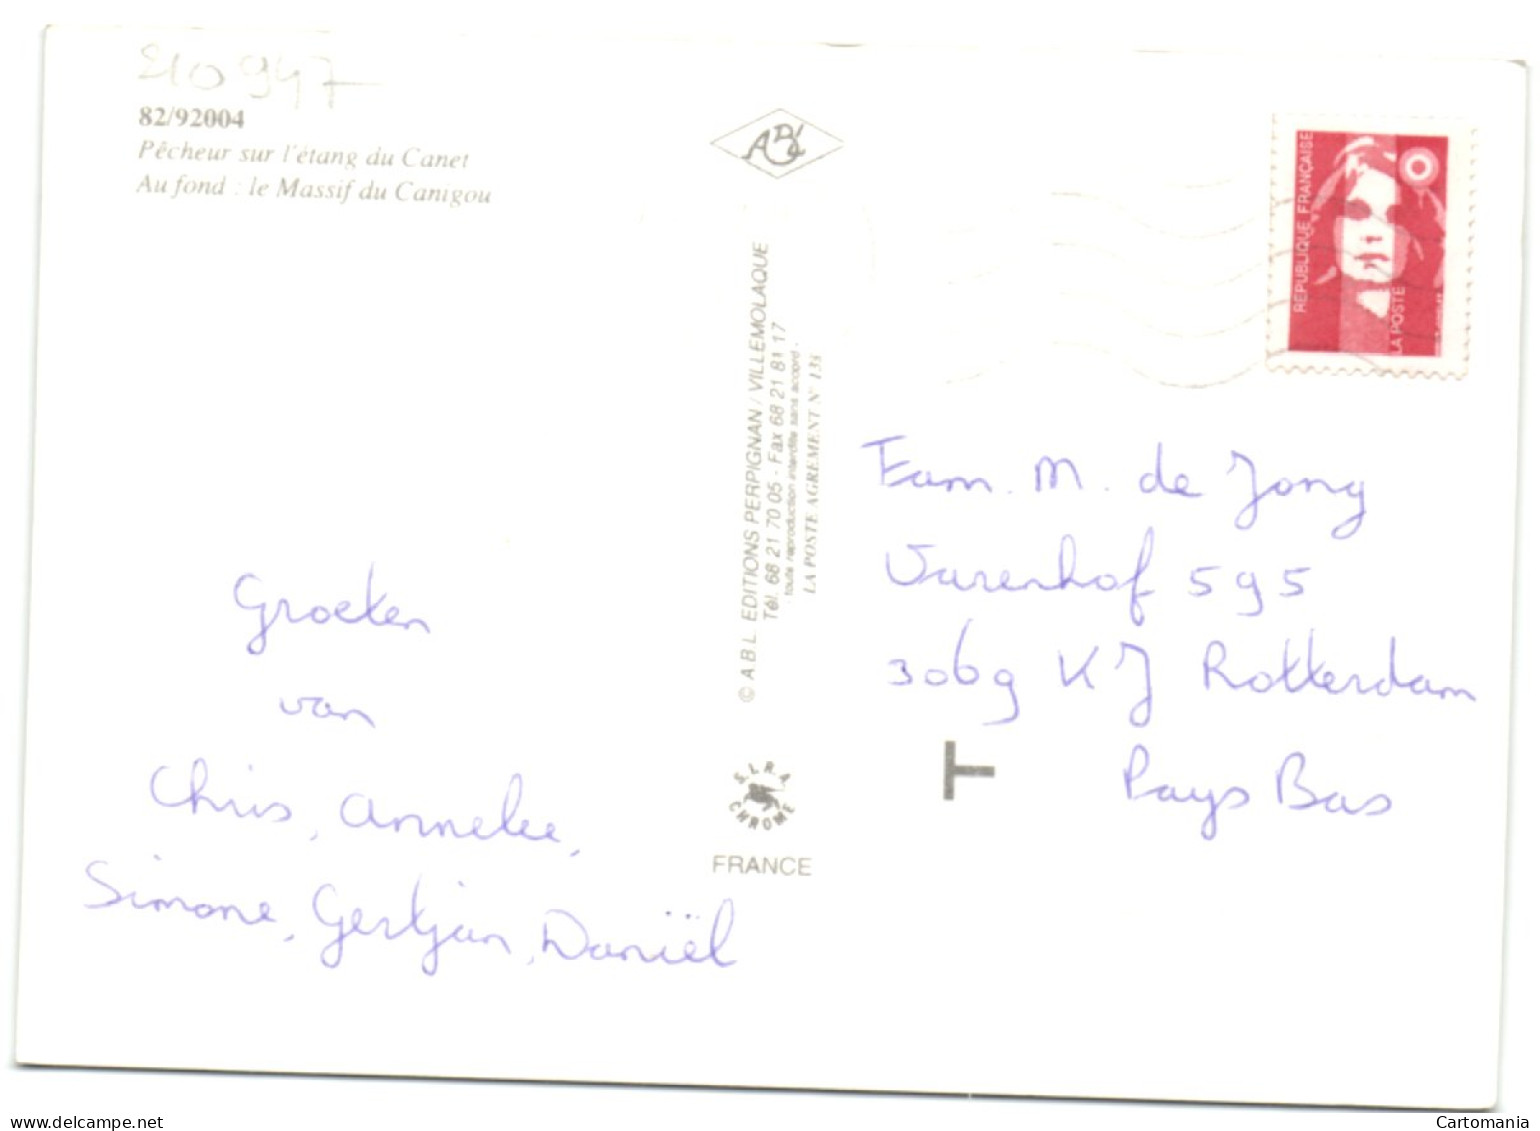 210947
82/92004
Pêcheur sur l'étang du Canet
Au fond : le Massif du Canigou
ABL
REPUBLIQUE FRANÇAISE
LA POSTE
© A B L EDITIONS PERPIGNAN / VILLEMOLAQUE
Tél. 68 21 70 05 - Fax 68 21 81 17
- toute reproduction interdite sans accord -
LA POSTE AGREMENT N° 135
Groeten
van
Chris, Annelee,
Simone, Gertjan, Daniël
Fam. M. de Jong
Varenhof 595
3069 KJ Rotterdam
Pays Bas
T
S.L.R.A
CHROME
FRANCE
www.delcampe.net
Cartomania